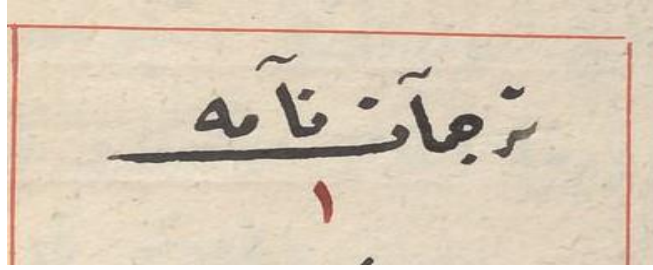 ترجمآن نآمه
١